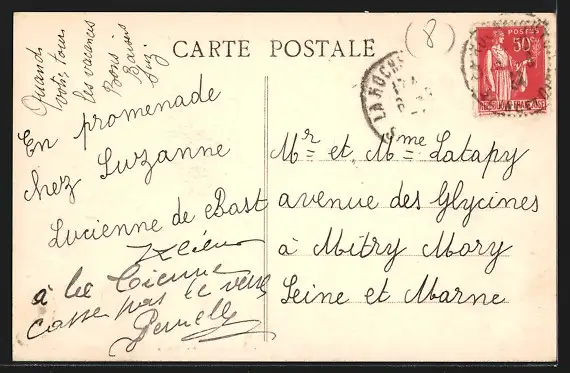 CARTE POSTALE
(8)
LA ROCHE
POSTES
50c
Quand
votre tour
les vacances
Bons
Baisers
En promenade
chez Suzanne
Lucienne de Bast
à la tienne
casse pas le verre
Mr et Mme Latapy
avenue des Glycines
à Mitry Mory
Seine et Marne